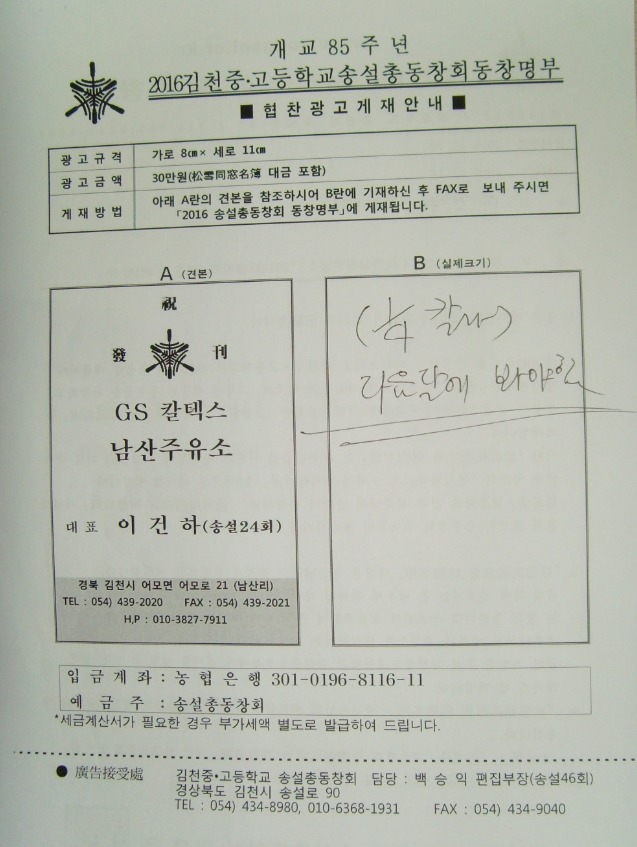 개교 85주년
2016김천중·고등학교송설총동창회동창명부
■ 협찬광고게재안내 ■
광고규격 가로 8㎝× 세로 11㎝
광고금액 30만원(松雪同窓名簿 대금 포함)
게재방법 아래 A란의 견본을 참조하시어 B란에 기재하신 후 FAX로 보내 주시면
「2016 송설총동창회 동창명부」에 게재됩니다.
A (견본)
祝
發 刊
GS 칼텍스
남산주유소
대표 이건하(송설24회)
경북 김천시 어모면 어모로 21 (남산리)
TEL : 054) 439-2020 FAX : 054) 439-2021
H,P : 010-3827-7911
B (실제크기)
(¼ 칼라)
다음달에 봐야함
입금계좌 : 농협은행 301-0196-8116-11
예금주 : 송설총동창회
*세금계산서가 필요한 경우 부가세액 별도로 발급하여 드립니다.
● 廣告接受處 김천중·고등학교 송설총동창회 담당 : 백승익 편집부장(송설46회)
경상북도 김천시 송설로 90
TEL : 054) 434-8980, 010-6368-1931 FAX : 054) 434-9040